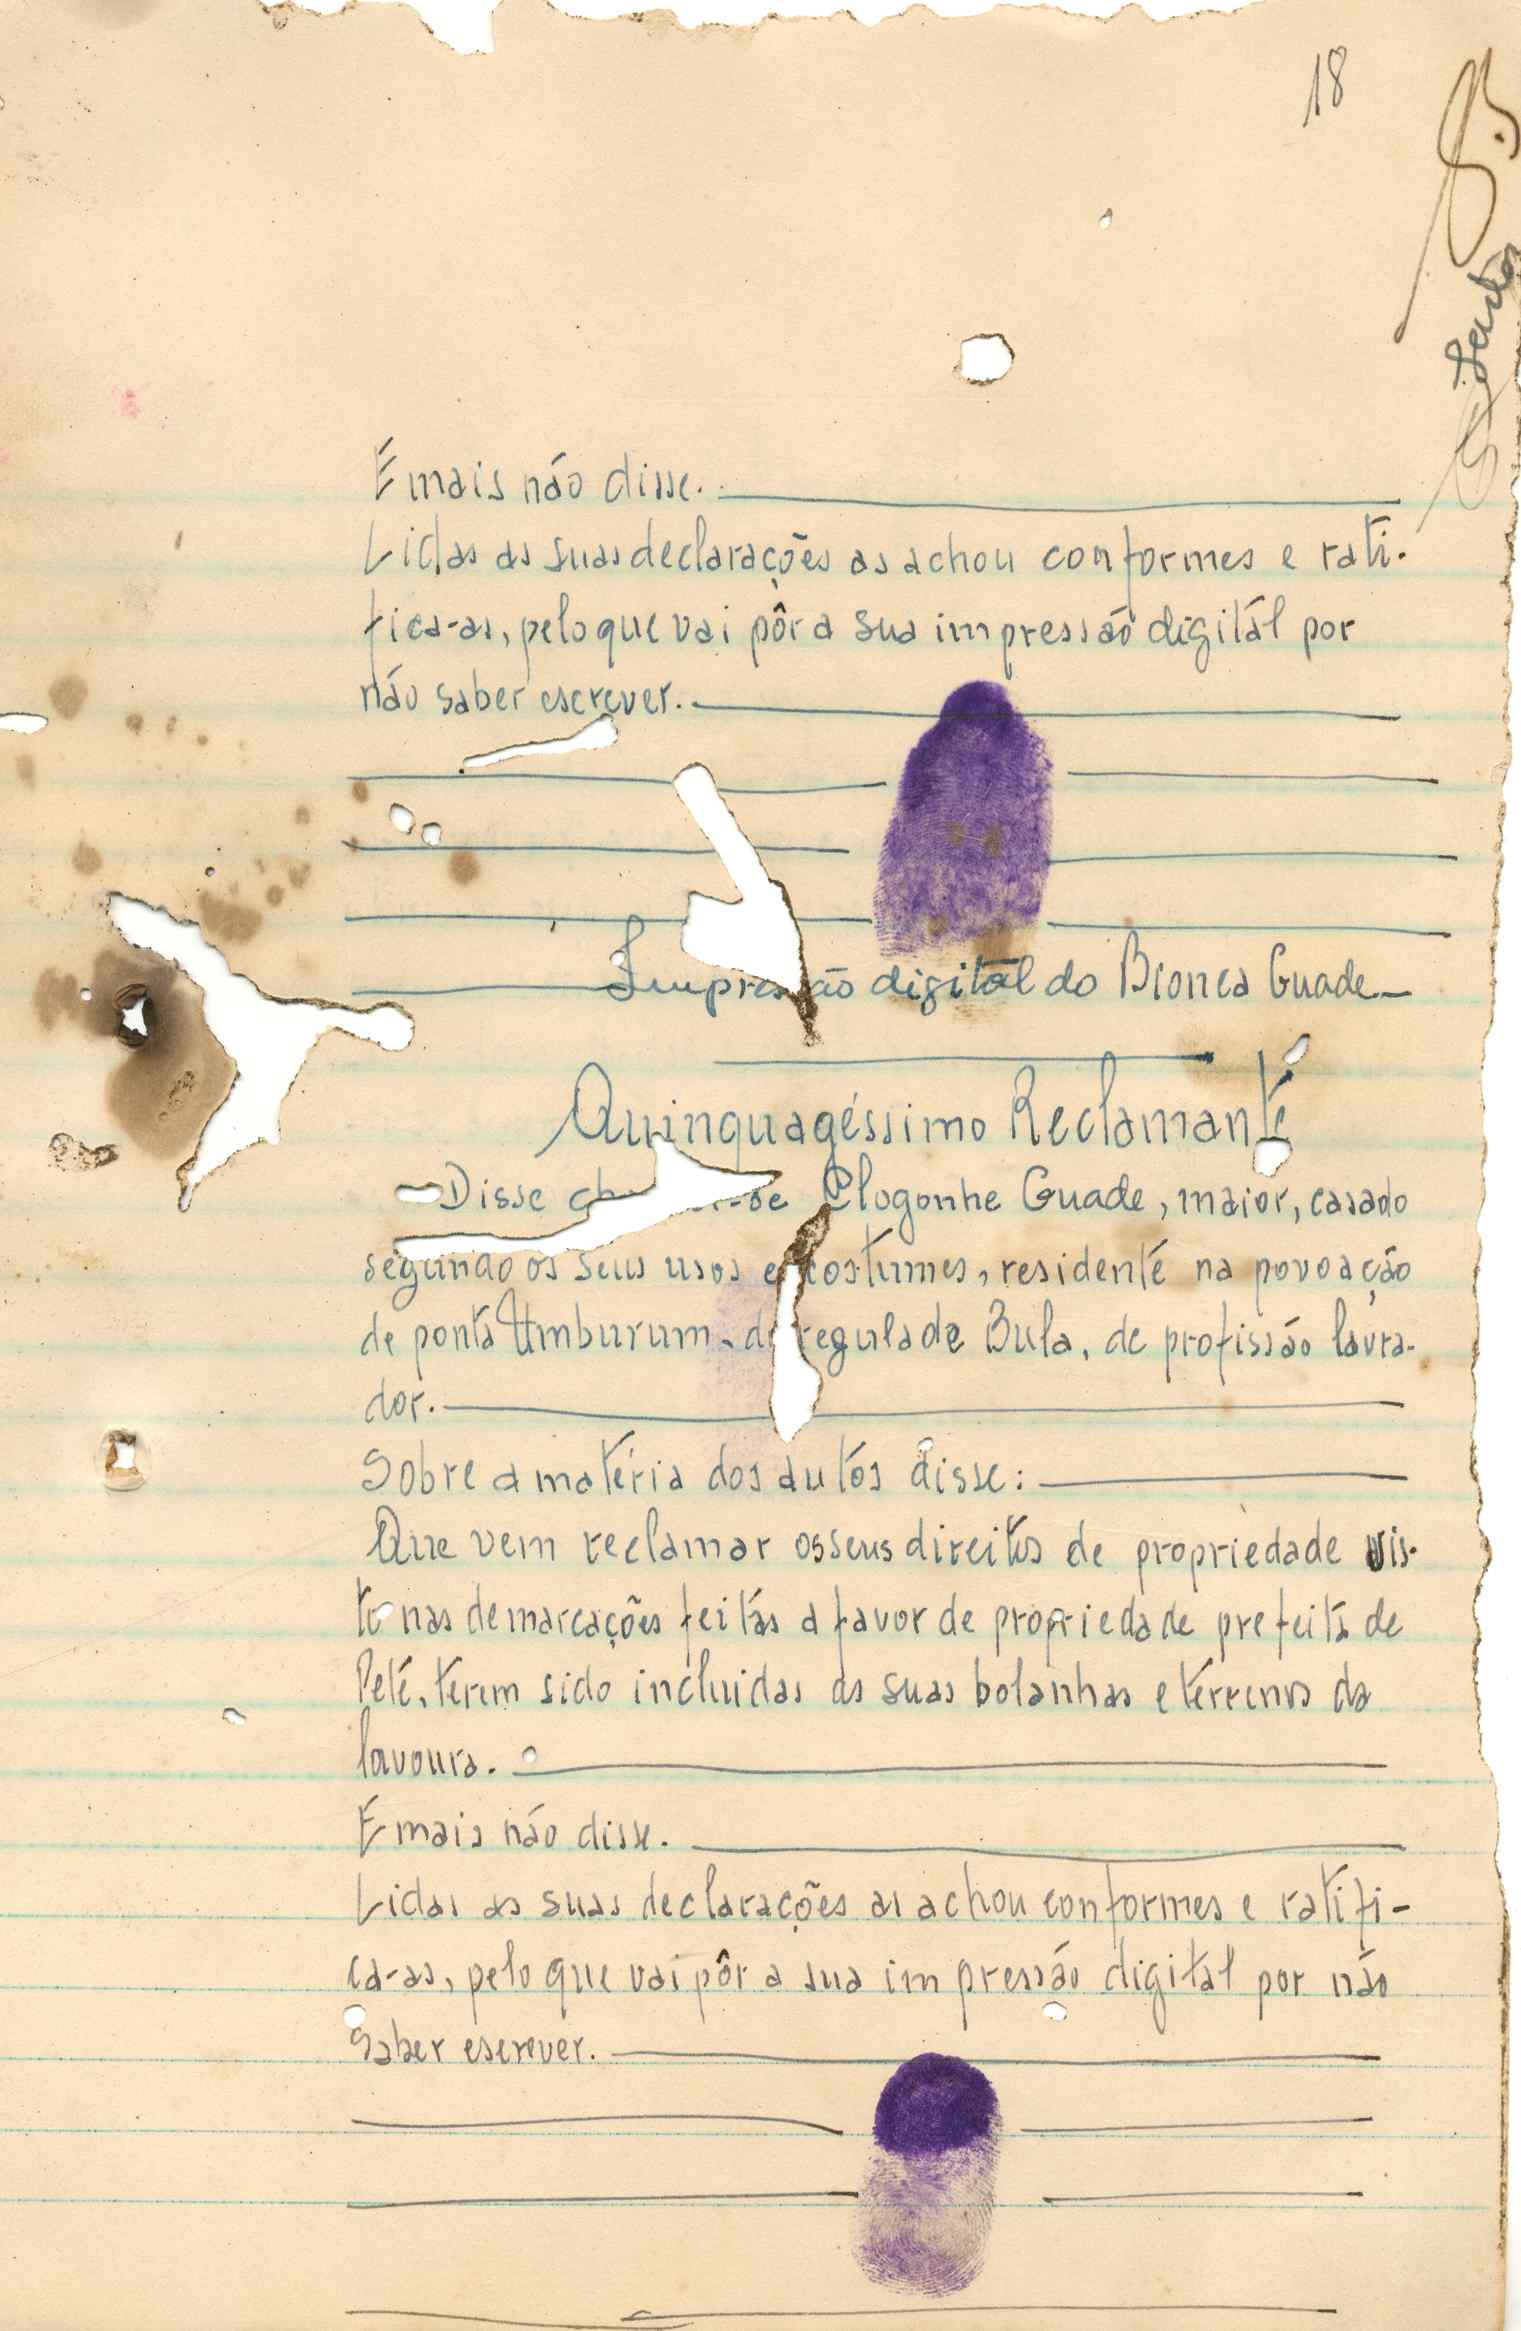 18
Santos
E mais não disse.
Lidas as suas declarações as achou conformes e rati-
fica-as, pelo que vai pôr a sua impressão digitál por
não saber escrever.
Impressão digital do Bionca Guade
Quinquagéssimo Reclamante
Disse se Clogonhe Guade, maior, casado
segundo os seus usos e costumes, residente na povoação
de ponta Umburum, do regulado Bula, de profissão lavra-
dor.
Sobre a matéria dos autos disse:
Que vem reclamar os seus direitos de propriedade vis-
to nas demarcações feitas a favor de propriedade prefeita de
Peté, terem sido incluidas as suas bolanhas e terrenos da
lavoura.
E mais não disse.
Lidas as suas declarações as achou conformes e ratifi-
ca-as, pelo que vai pôr a sua impressão digital por não
saber escrever.